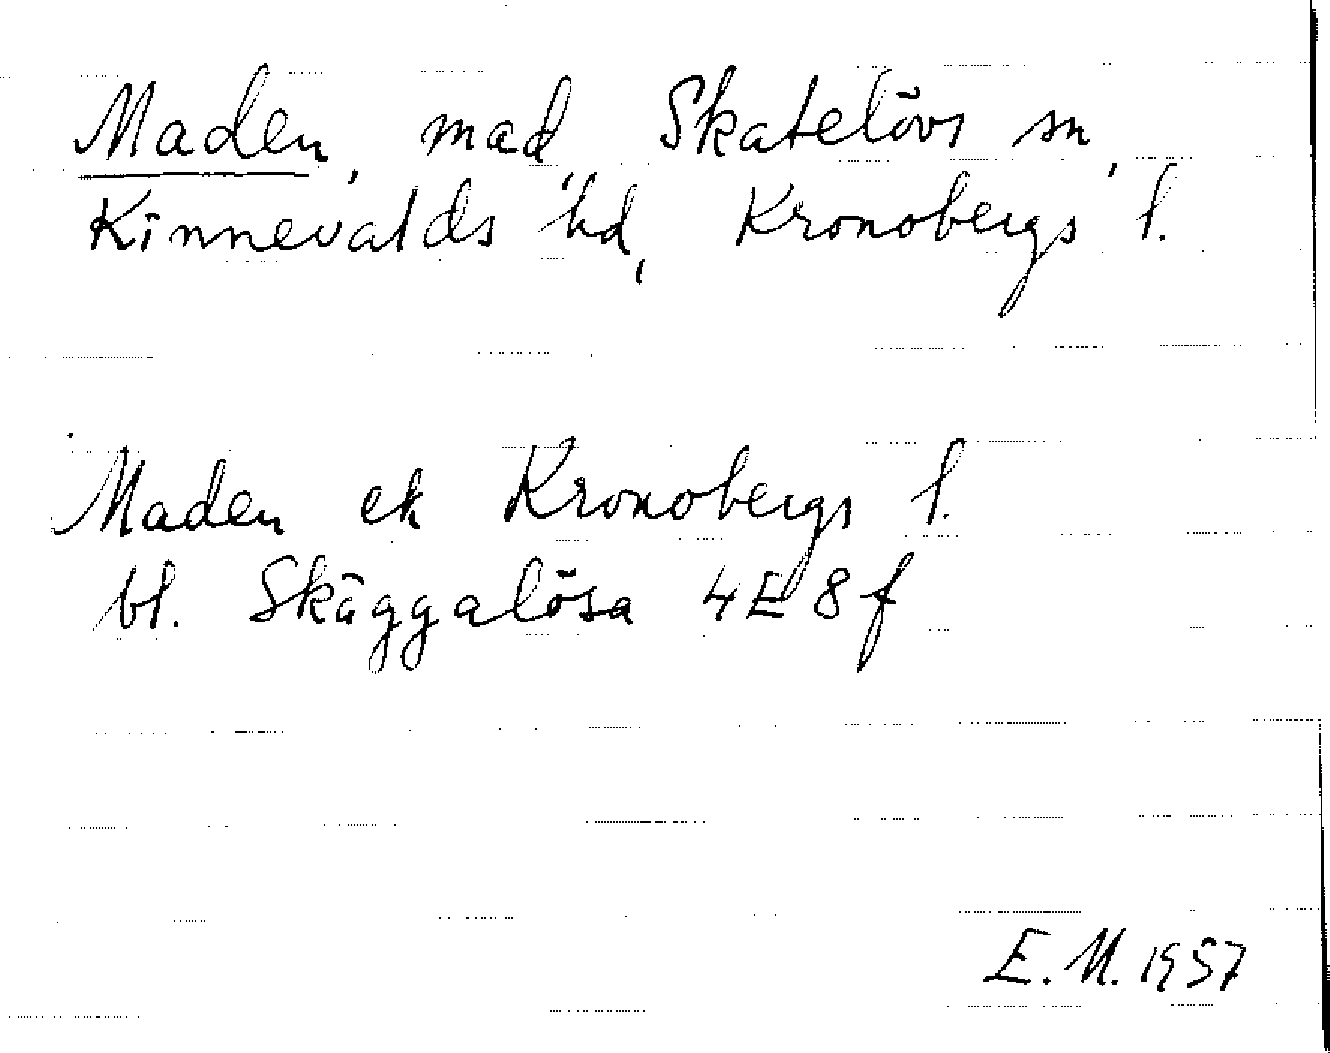 Maden, mad, Skatelövs sn,
Kinnevalds hd, Kronobergs l.
Maden ek Kronobergs l.
bl. Skäggalösa 4E8f
E.M. 1957